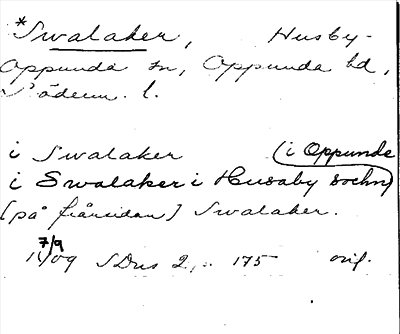 *Swalaker, Husby-
Oppunda sn, Oppunda hd,
Söderm. l.
i Swalaker (i Oppunde
i Swalaker i Husaby sochn)
[på frånsidan] Swalaker.
7/9
1409 SDns 2, 175 orig.